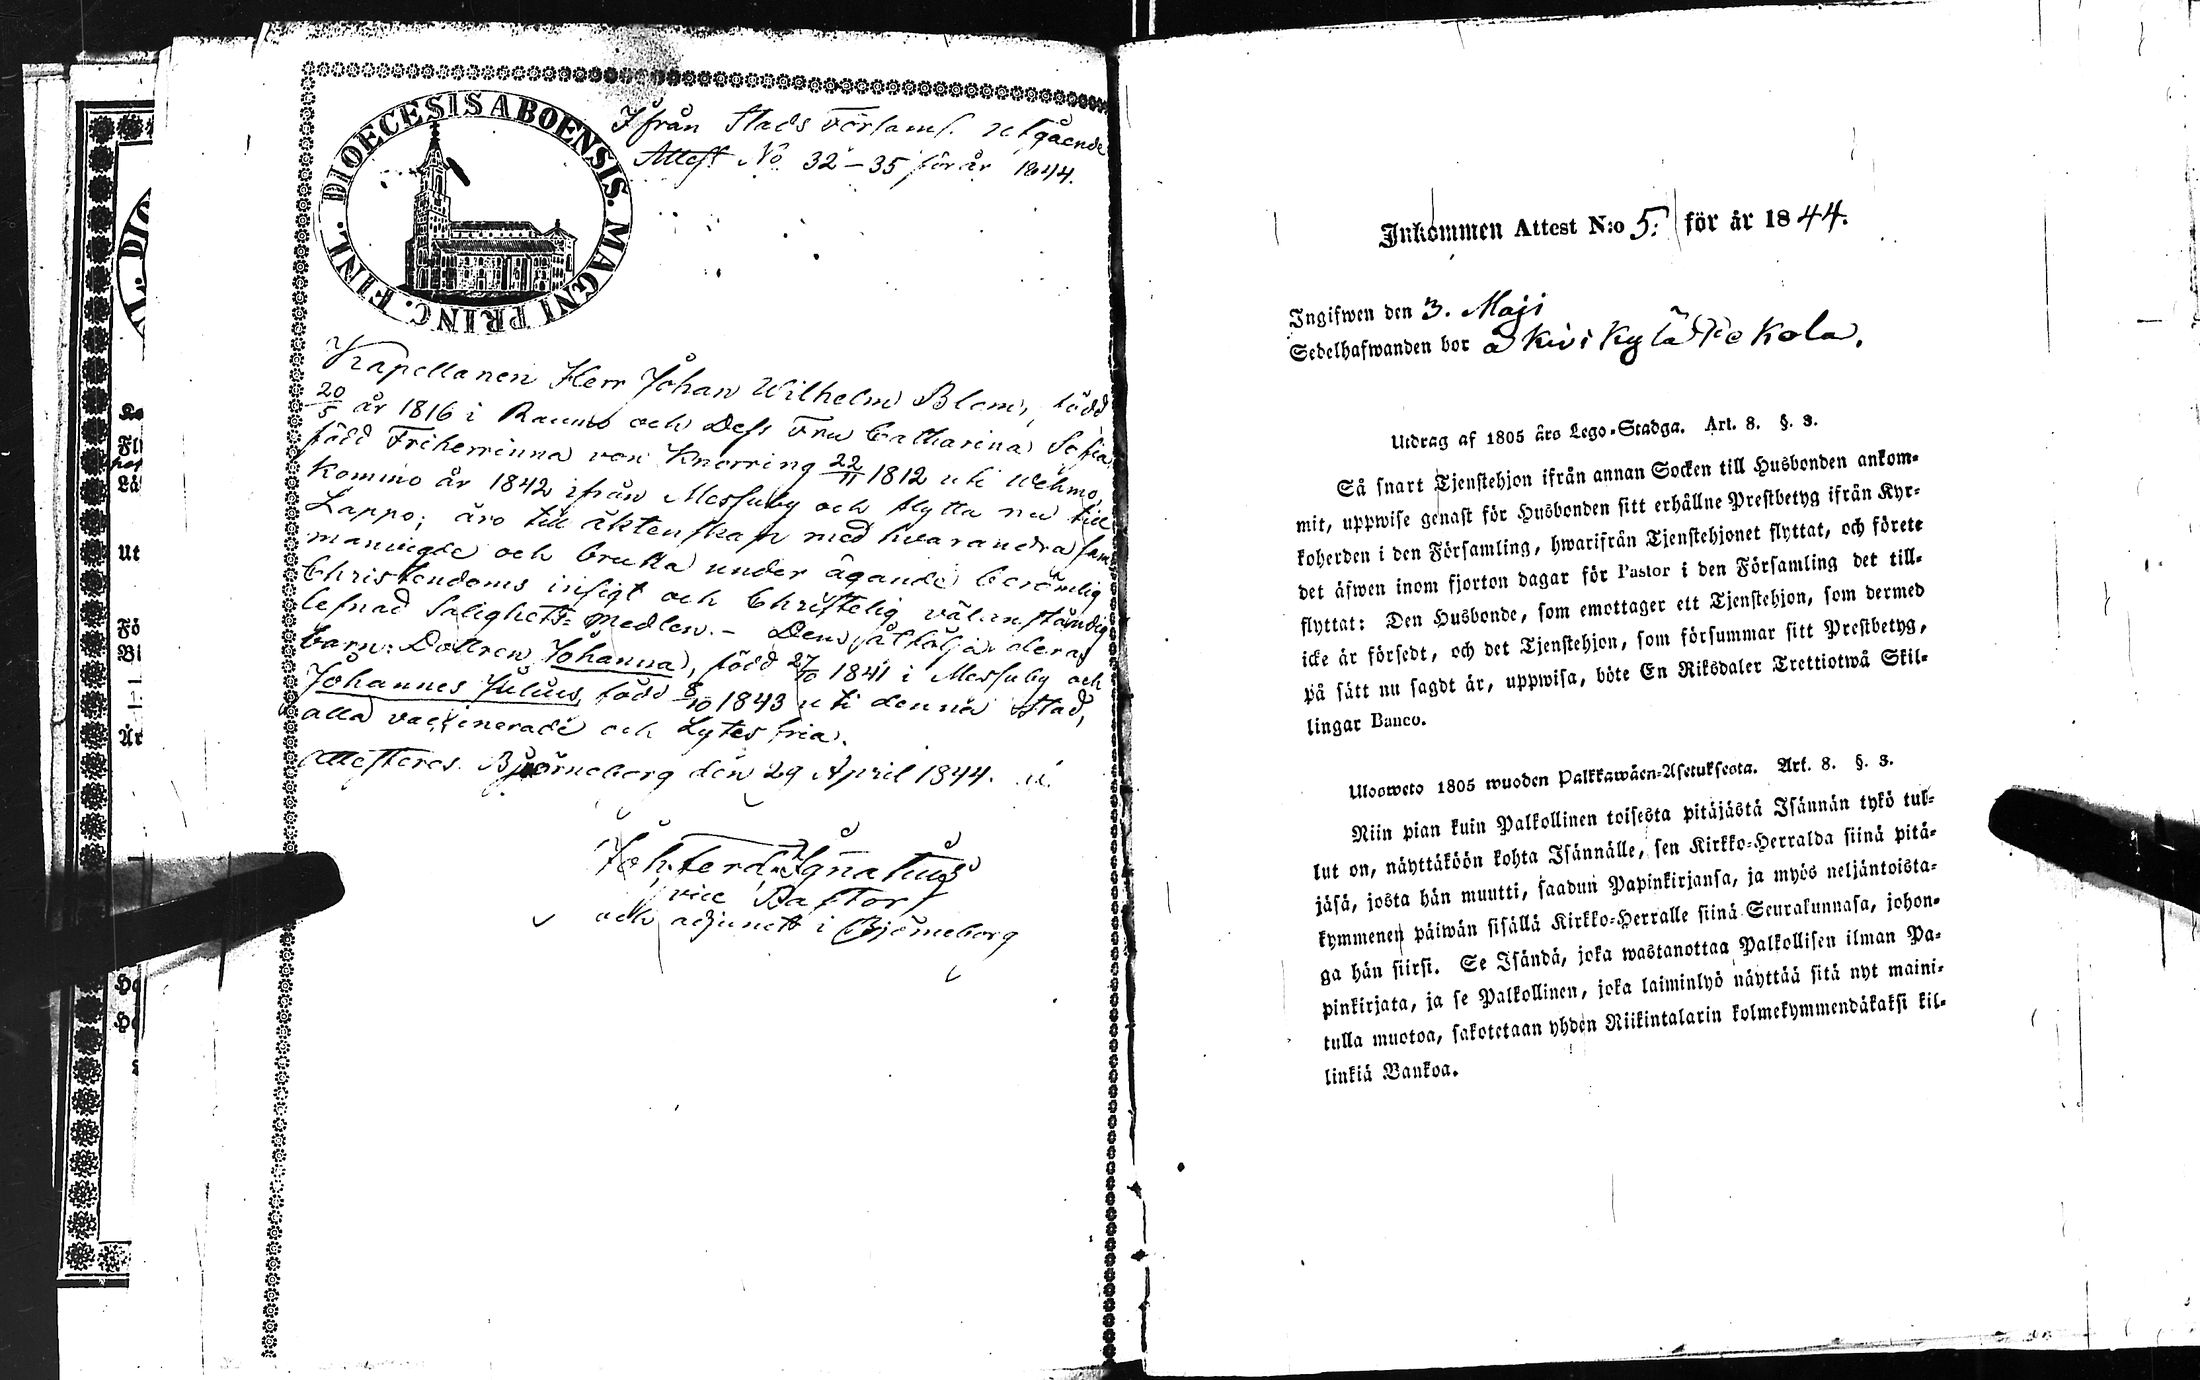 DIOECESIS ABOENSIS. MAGNI PRINC. FINL.
Ifrån Stads Församl. utgående
Attest No 32–35 för år 1844.
Kapellanen Herr Johan Wilhelm Blom, född
20/5 år 1816 i Raumo och Dess Fru Catharina Sofia
född Friherrinna von Knorring 22/11 1812 uti Wehmo,
komino år 1842 ifrån Messuby och flytta nu till
Lappo; äro till äktenskap med hvarandra sam
manvigde och bruka under ägande berömlig
Christendoms insigt och Christelig välanständig
lefnad Salighets-Medlen. – Dem åtfölja deras
barn: Dottren Johanna, född 27/10 1841 i Messuby och
Johannes Julius, född 8/10 1843 uti denna Stad,
alla vaccinerade och Lytes fria.
Attesteras. Björneborg den 29 April 1844.
Joh. Ferd. Ignatius
vice Pastor
och adjunct i Björneborg
Inkommen Attest N:o 5: för år 1844.
Ingifwen den 3. Maji
Sedelhafwanden bor å Kivikylä
Utdrag af 1805 års Lego-Stadga. Art. 8. §. 3.
Så snart Tjenstehjon ifrån annan Socken till Husbonden ankom-
mit, uppwise genast för Husbonden sitt erhållne Prestbetyg ifrån Kyr-
koherden i den Församling, hwarifrån Tjenstehjonet flyttat, och förete
det äfwen inom fjorton dagar för Pastor i den Församling det till-
flyttat: Den Husbonde, som emottager ett Tjenstehjon, som dermed
icke är försedt, och det Tjenstehjon, som försummar sitt Prestbetyg,
på sätt nu sagdt är, uppwisa, böte En Riksdaler Trettiotwå Skil-
lingar Banco.
Ulosweto 1805 wuoden Palkkawäen-Asetuksesta. Art. 8. §. 3.
Niin pian kuin Palkollinen toisesta pitäjästä Isännän tykö tul-
lut on, näyttäköön kohta Isännälle, sen Kirkko-Herralda siinä pitä-
jäsä, josta hän muutti, saadun Papinkirjansa, ja myös neljäntoista-
kymmenen päiwän sisällä Kirkko-Herralle siinä Seurakunnasa, johon-
ga hän siirsi. Se Isändä, joka wastanottaa Palkollisen ilman Pa-
pinkirjata, ja se Palkollinen, joka laiminlyö näyttää sitä nyt maini-
tulla muotoa, sakotetaan yhden Riikintalarin kolmekymmendäkaksi kil-
linkiä Bankoa.